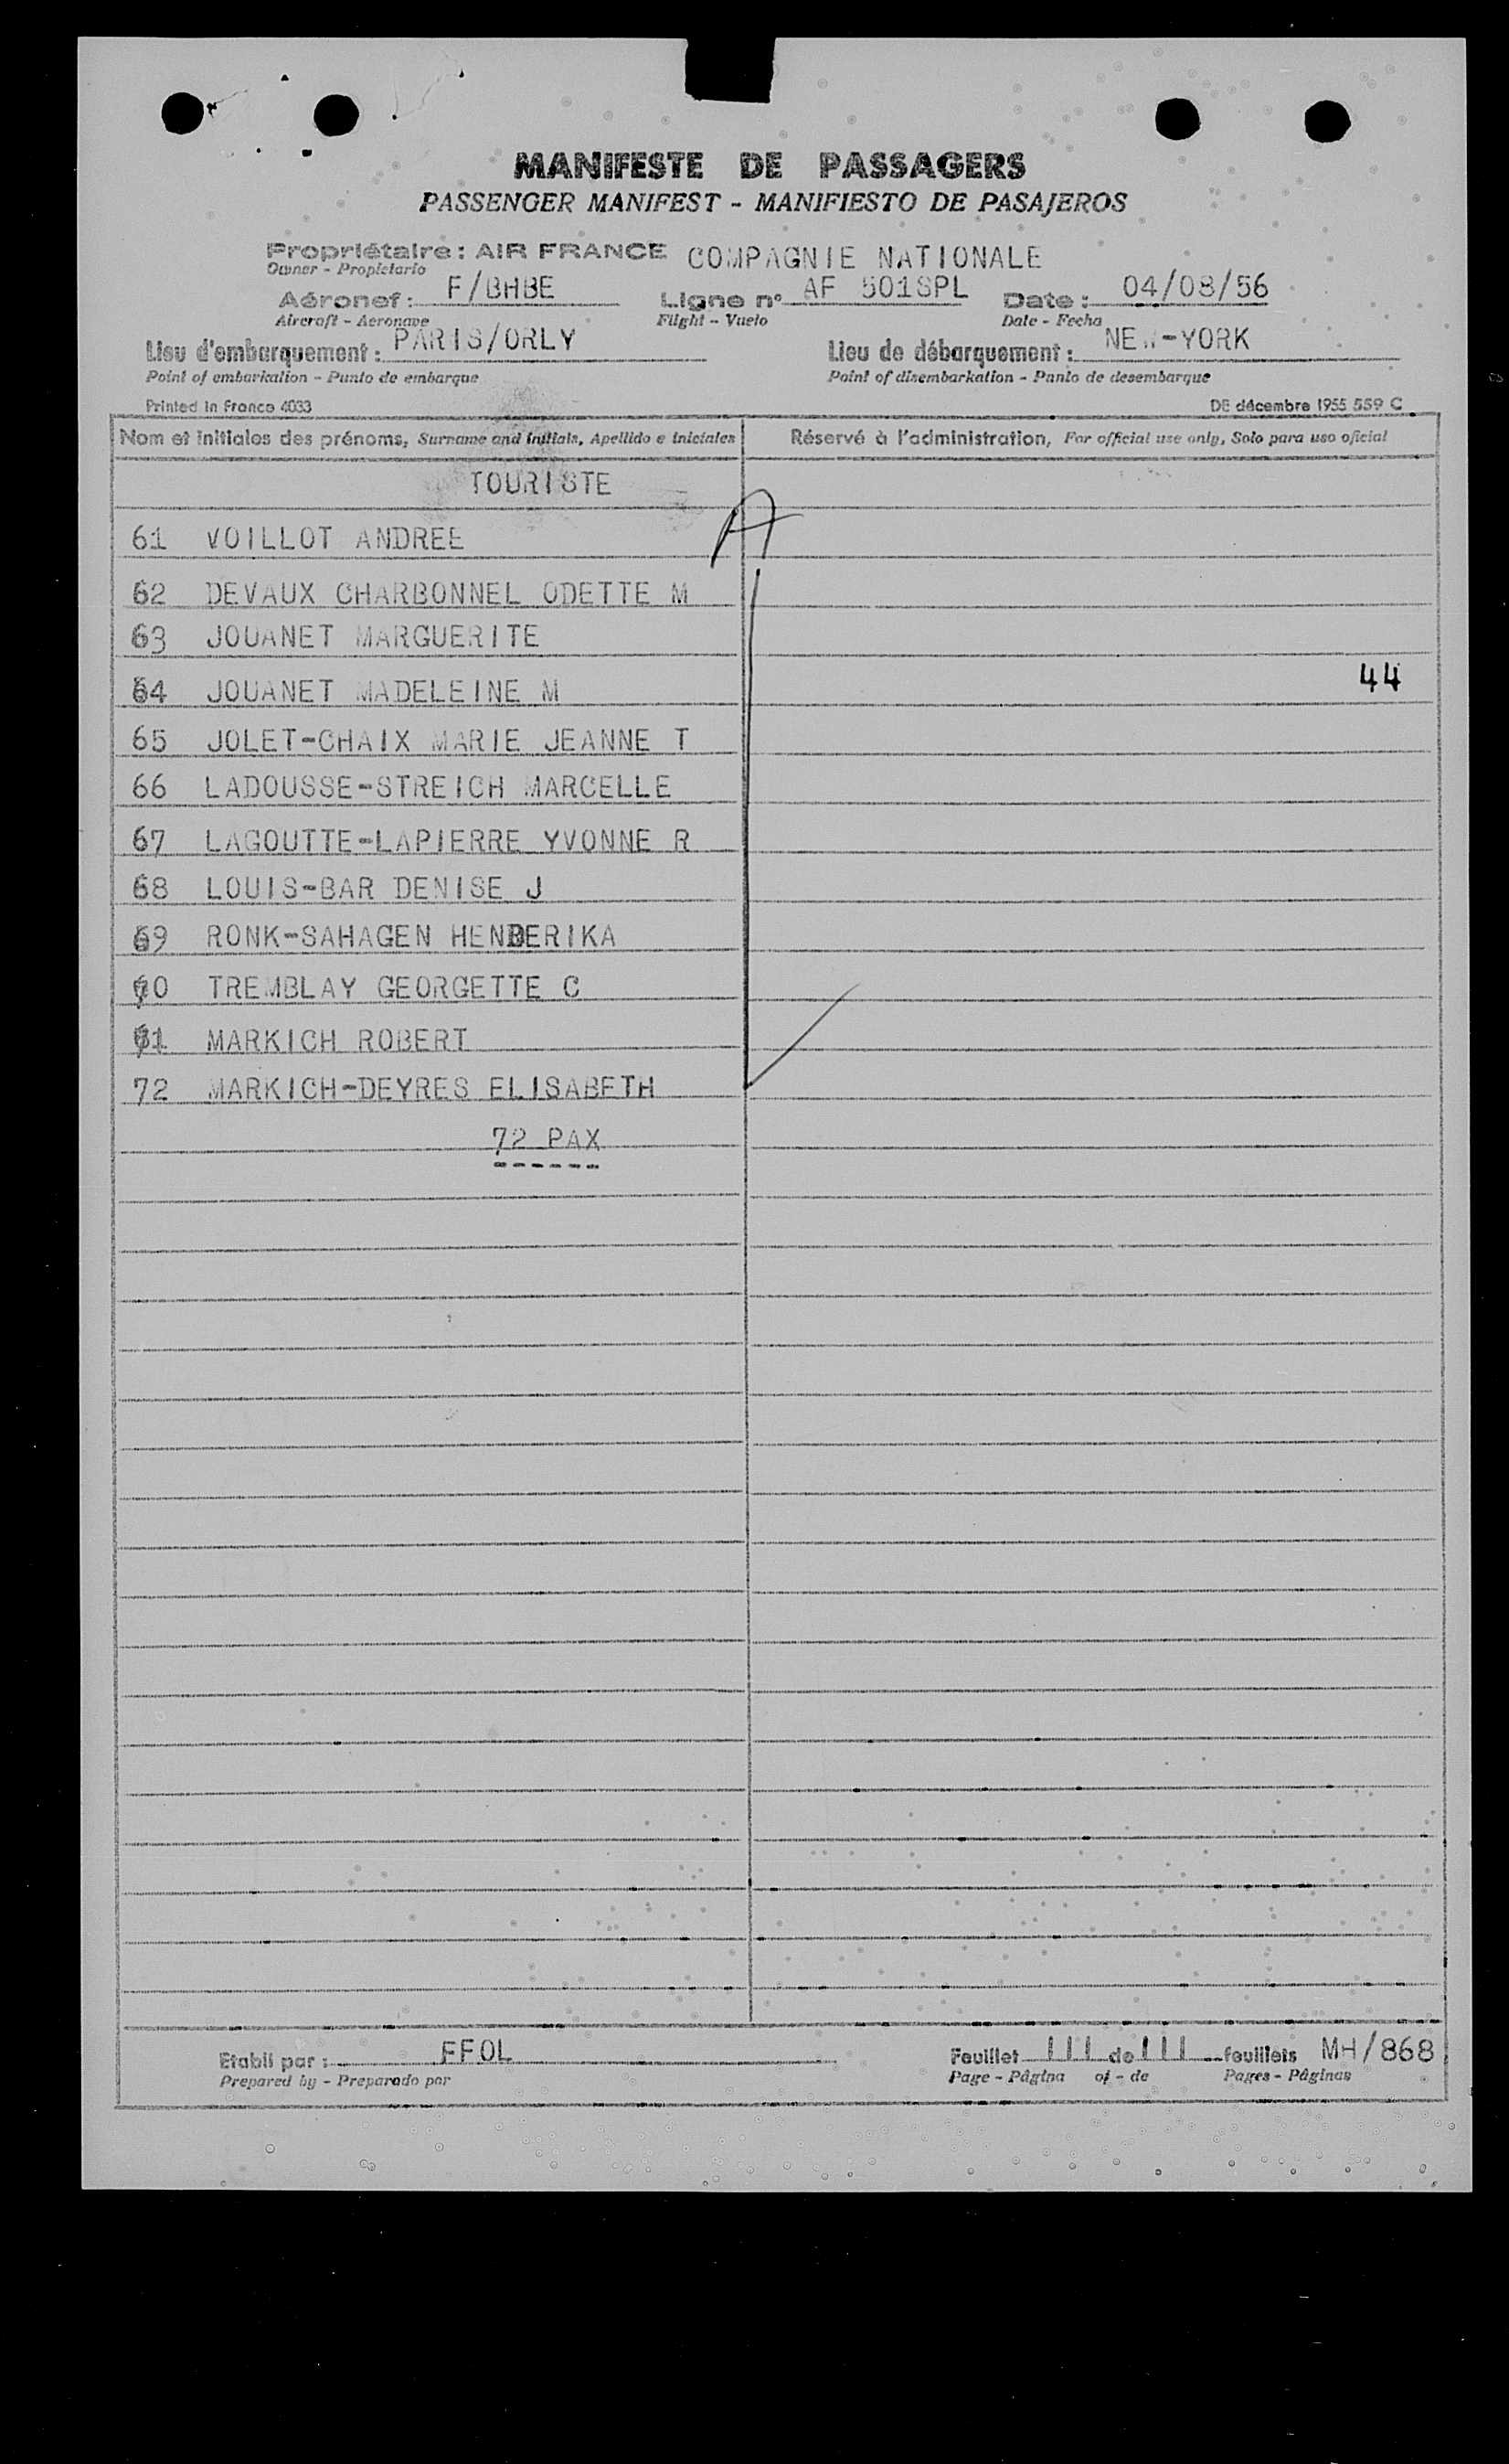 MANIFESTE DE PASSAGERS
PASSENGER MANIFEST - MANIFIESTO DE PASAJEROS
Propriétaire : AIR FRANCE COMPAGNIE NATIONALE
Owner - Propietario
Aéronef : F/BHBE Ligne n° AF 501SPL Date : 04/08/56
Aircraft - Aeronave Flight - Vuelo Date - Fecha
Lieu d'embarquement : PARIS/ORLY Lieu de débarquement : NEW-YORK
Point of embarkation - Punto de embarque Point of disembarkation - Punto de desembarque
Printed in France 4033 DE décembre 1955 559 C
Nom et initiales des prénoms, Surname and initials, Apellido e iniciales Réservé à l'administration, For official use only, Solo para uso oficial
TOURISTE
A
61 VOILLOT ANDREE
62 DEVAUX CHARBONNEL ODETTE M
63 JOUANET MARGUERITE
64 JOUANET MADELEINE M 44
65 JOLET-CHAIX MARIE JEANNE T
66 LADOUSSE-STREICH MARCELLE
67 LAGOUTTE-LAPIERRE YVONNE R
68 LOUIS-BAR DENISE J
69 RONK-SAHAGEN HENDERIKA
70 TREMBLAY GEORGETTE C
71 MARKICH ROBERT
72 MARKICH-DEYRES ELISABETH
72 PAX
------
Etabli par : FFOL Feuillet III de III feuillets MH/868
Prepared by - Preparado por Page - Página of - de Pages - Páginas